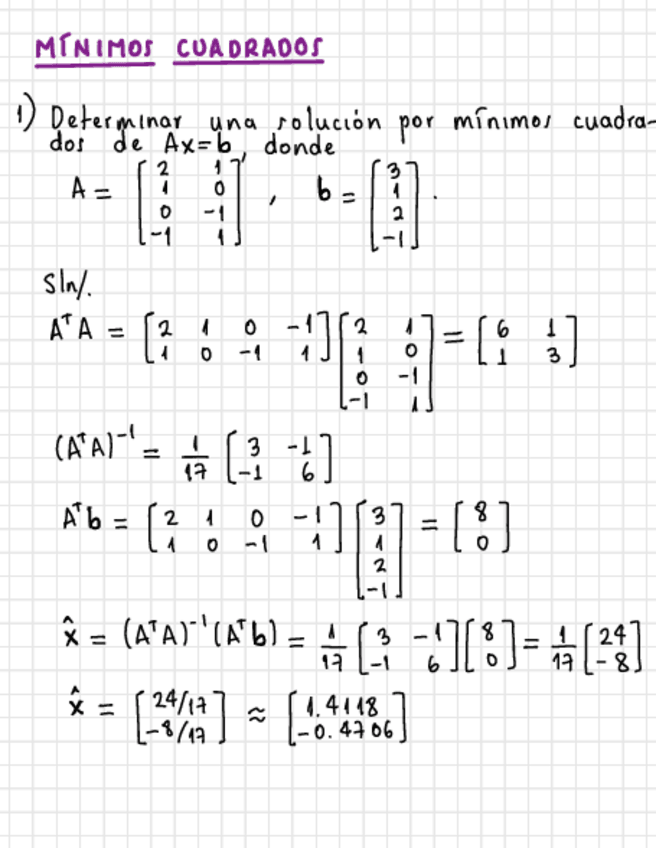 MÍNIMOS CUADRADOS
1) Determinar una solución por mínimos cuadra-
dos de Ax=b, donde
A = [2 1; 1 0; 0 -1; -1 1], b = [3; 1; 2; -1].
Sln/.
AᵀA = [2 1 0 -1; 1 0 -1 1][2 1; 1 0; 0 -1; -1 1] = [6 1; 1 3]
(AᵀA)⁻¹ = 1/17 [3 -1; -1 6]
Aᵀb = [2 1 0 -1; 1 0 -1 1][3; 1; 2; -1] = [8; 0]
x̂ = (AᵀA)⁻¹(Aᵀb) = 1/17 [3 -1; -1 6][8; 0] = 1/17 [24; -8]
x̂ = [24/17; -8/17] ≈ [1.4118; -0.4706]